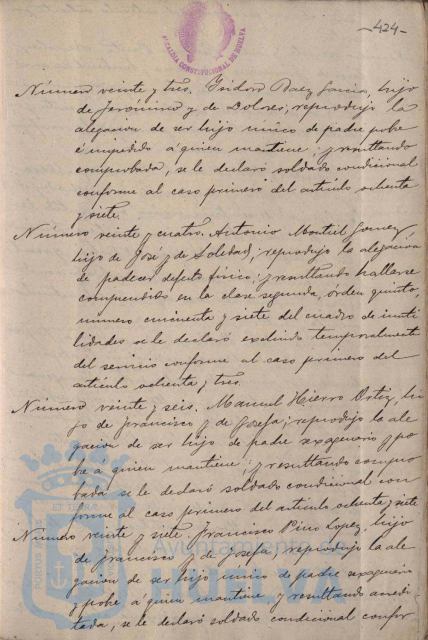 -424-
ALCALDIA CONSTITUCIONAL DE HUELVA
Número veinte y tres. Isidoro Baez Garcia, hijo
de Jerónimo y de Dolores; reprodujo la
alegacion de ser hijo único de padre pobre
é impedido á quien mantiene: y resultando
comprobada, se le declaró soldado condicional
conforme al caso primero del artículo ochenta
y siete.
Número veinte y cuatro. Antonio Montiel Gomez
hijo de José y de Soledad; reprodujo la alegación
de padecer defecto físico: y resultando hallarse
comprendido en la clase segunda, órden quinto,
número cincuenta y siete del cuadro de inuti
lidades se le declaró excluido temporalmente
del servicio conforme al caso primero del
artículo ochenta y tres.
Número veinte y seis. Manuel Hierro Ortiz, hi
jo de Francisco y de Josefa; reprodujo la ale
gacion de ser hijo de padre sexagenario y po
bre á quien mantiene: y resultando compro
bada se le declaró soldado condicional con
forme al caso primero del artículo ochenta y siete
Número veinte y siete. Francisco Pino Lopez, hijo
de Francisco y de Josefa, reprodujo la ale
gacion de ser hijo único de padre sexagenario
y pobre á quien mantiene y resultando acredi
tada, se le declaró soldado condicional confor
PORTUS
ET TERRAE
Ayuntamiento de
HUELVA